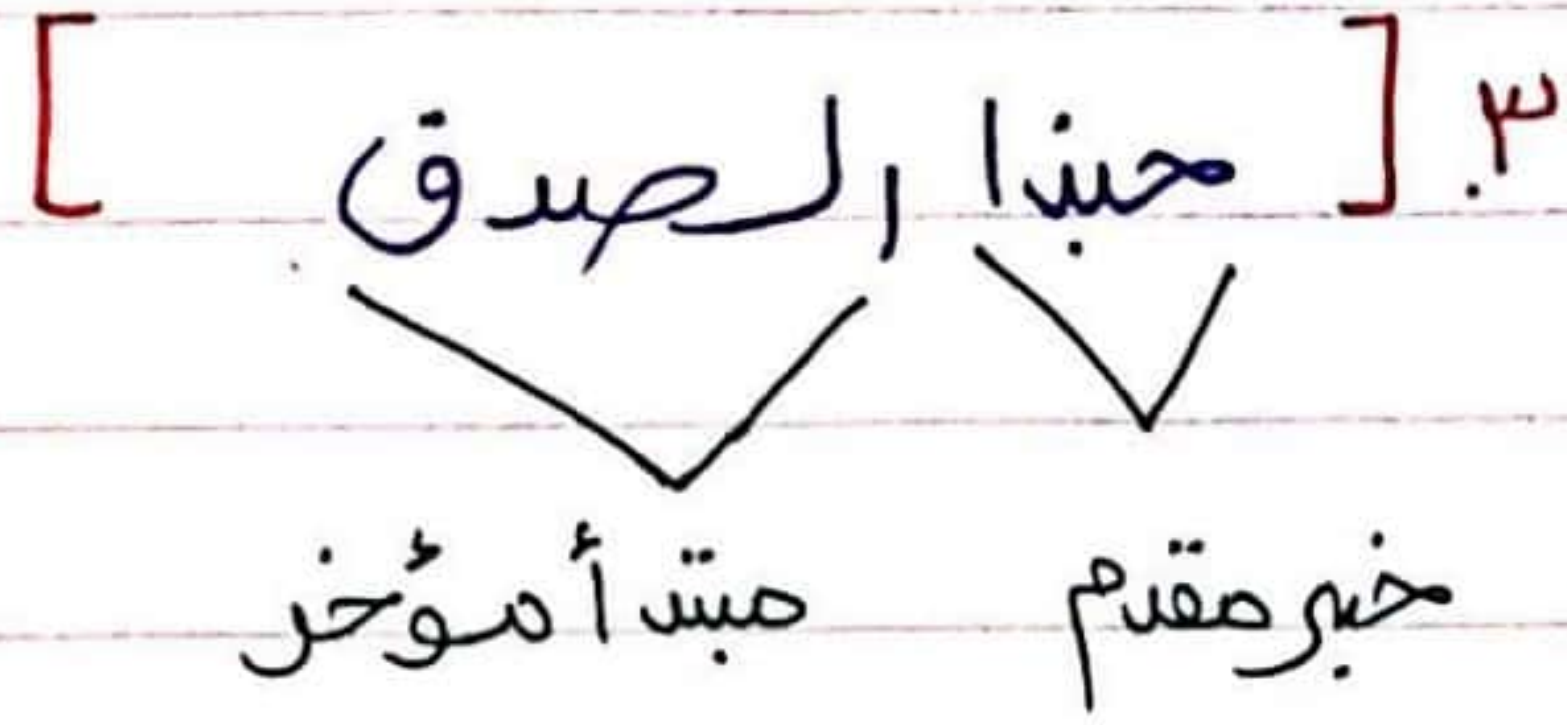 ٣. [ حبذا الصدق ]
خبر مقدم مبتدأ مؤخر